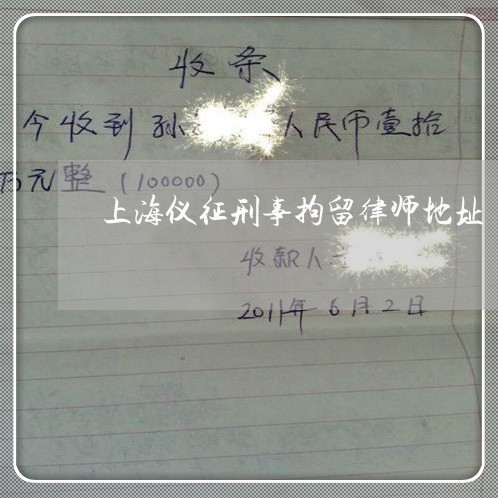 收条
今收到孙 人民币壹拾
万元整（100000）
上海仪征刑事拘留律师地址
收款人
2011年6月2日